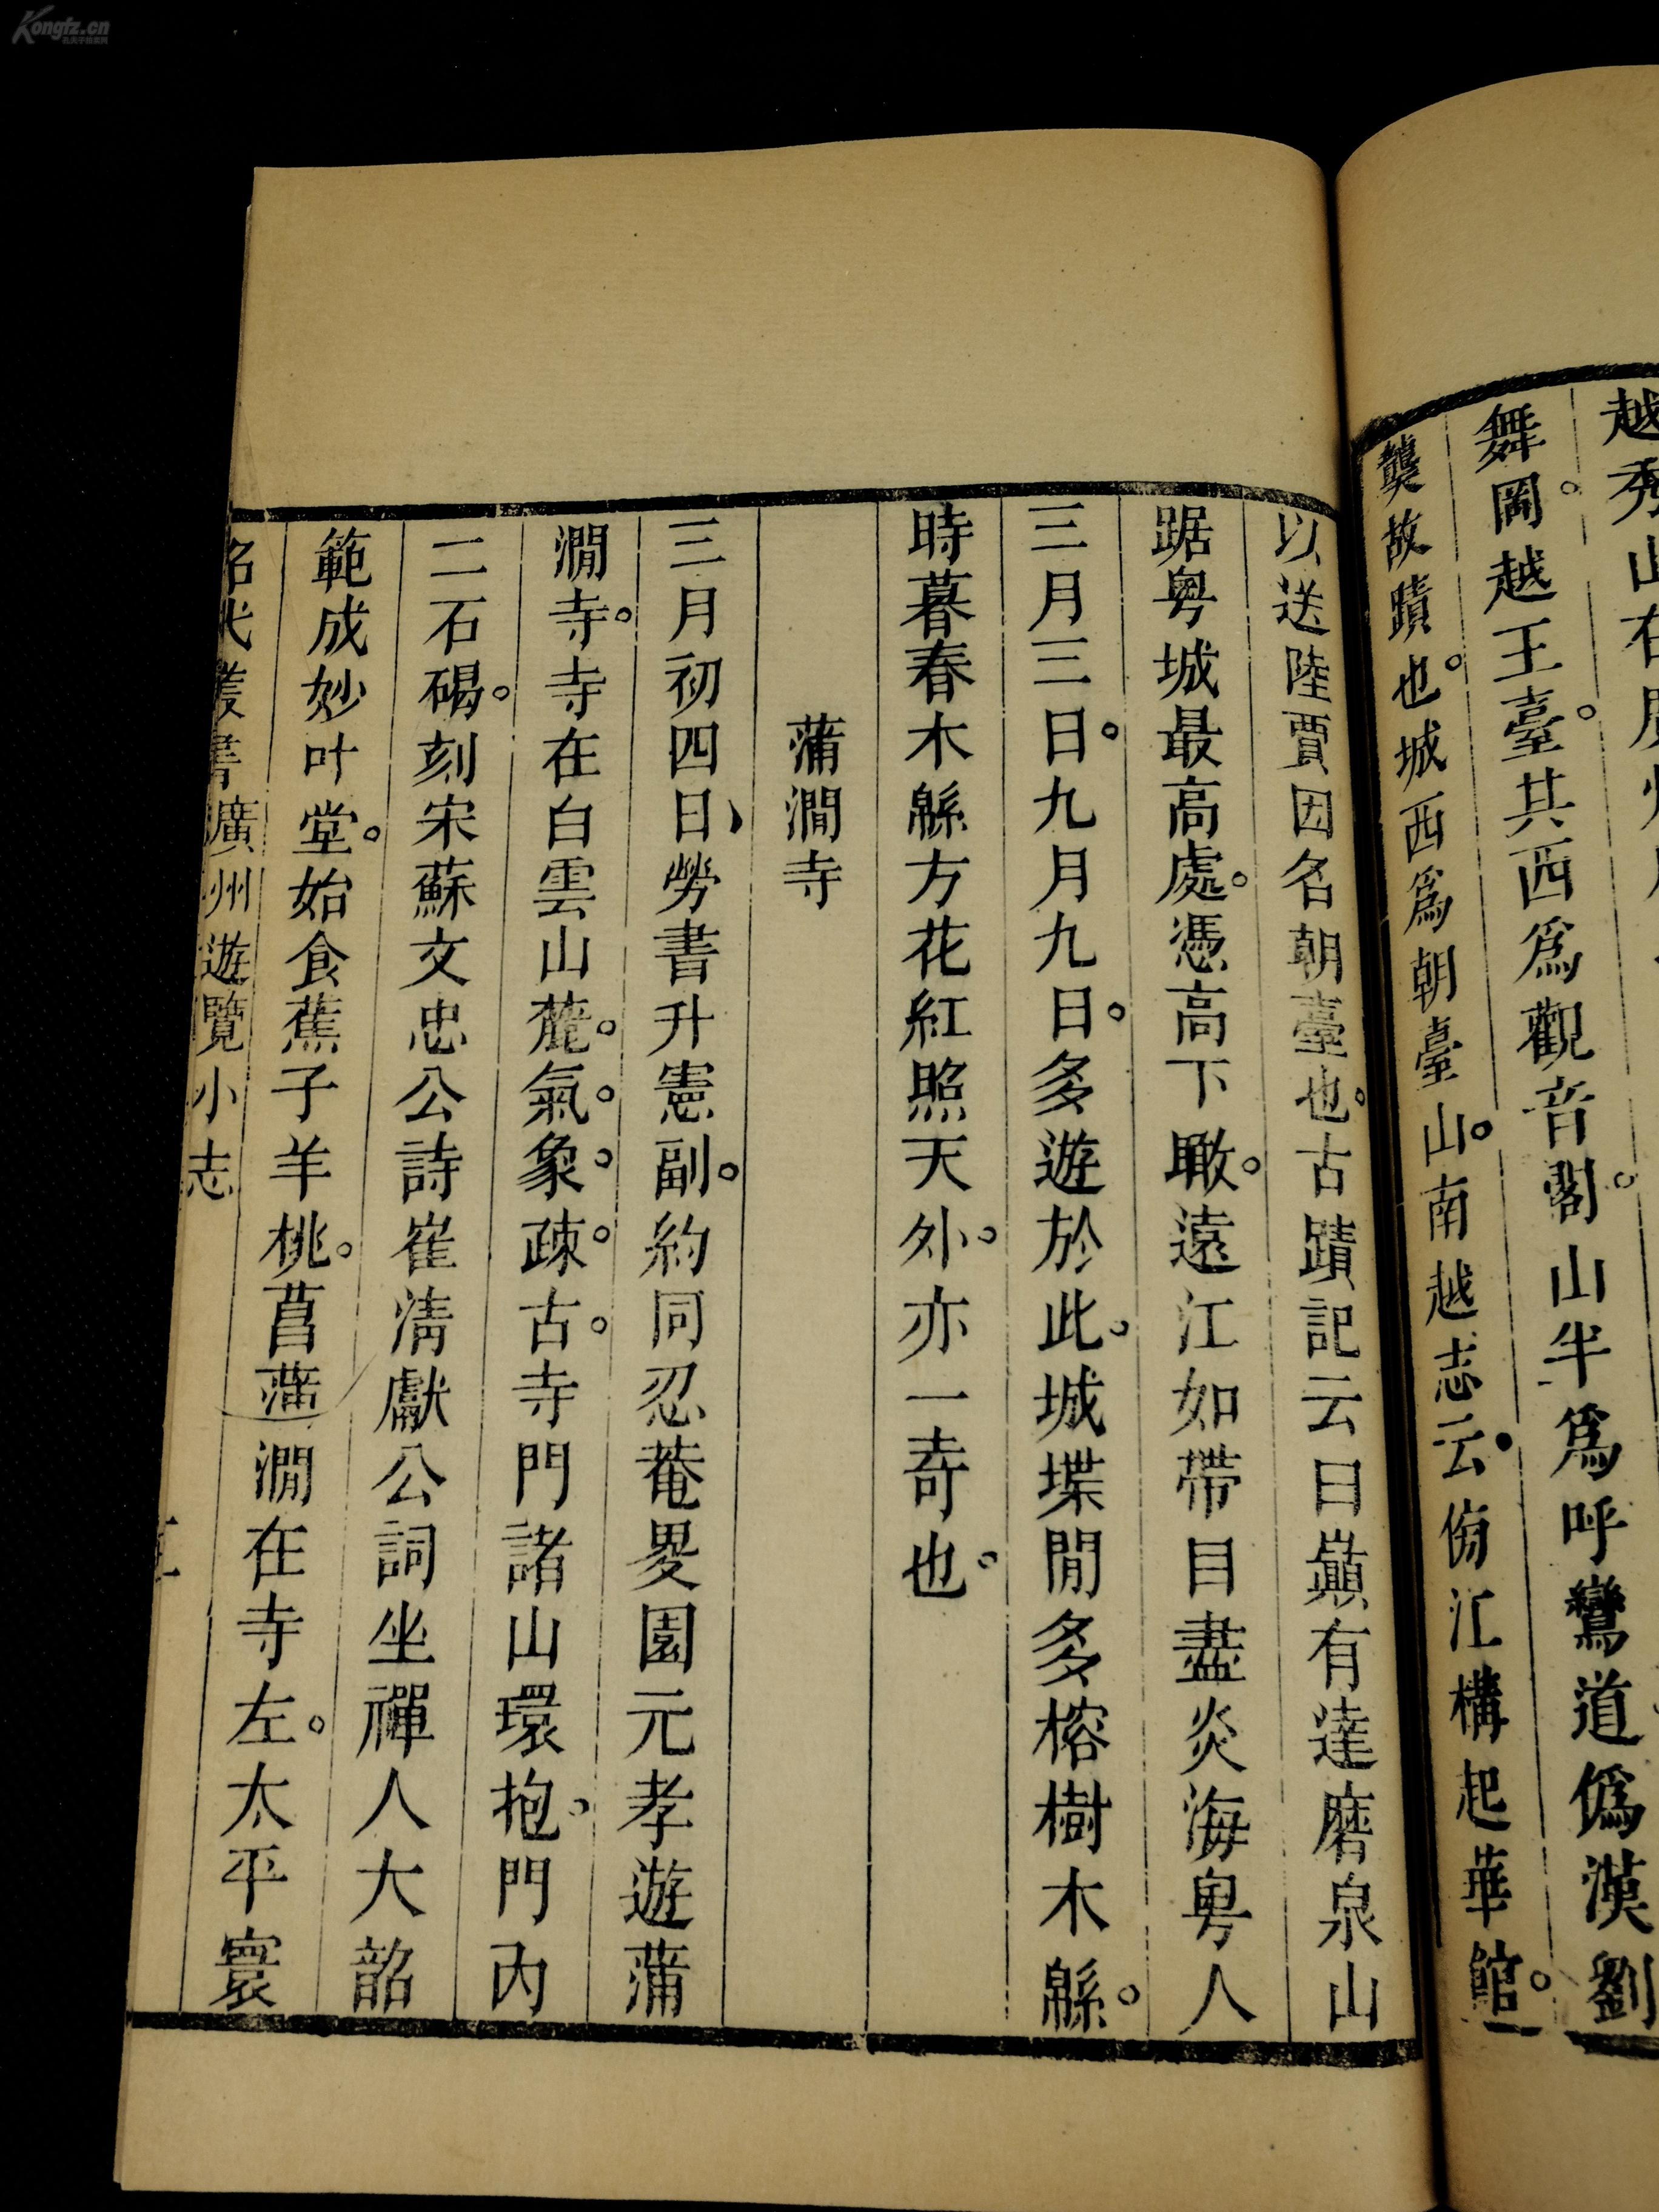 越秀山在廣州
舞岡。越王臺。其西爲觀音閣。山半爲呼鸞道僞漢劉
龑故蹟也。城西爲朝臺山。南越志云。傍江構起華館。
以送陸賈因名朝臺也。古蹟記云曰巓有達磨泉山
踞粤城最高處。憑高下瞰。遠江如帶目盡炎海粤人
三月三日。九月九日。多遊於此。城堞閒多榕樹木緜。
時暮春木緜方花紅照天外。亦一奇也。
蒲澗寺
三月初四日、勞書升憲副。約同忍菴㽞園元孝遊蒲
澗寺。寺在白雲山麓。氣。象。疎。古。寺門諸山環抱。門內
二石碣。刻宋蘇文忠公詩崔清獻公詞坐禪人大韶
範成妙叶堂。始食蕉子羊桃。菖蒲澗在寺左。太平寰
昭代叢書廣州遊覽小志
Kongfz.cn